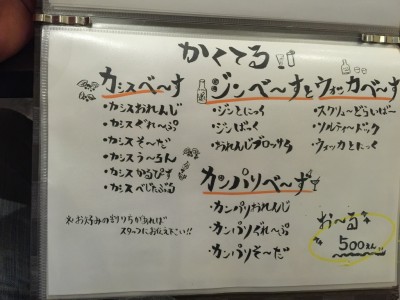 かくてる
カシスべ〜す
・カシスおれんじ
・カシスぐれ〜ぷ
・カシスそ〜だ
・カシスう〜ろん
・カシスかるぴす
・カシスべじたぶる
※お好みの割り方があれば
スタッフにお伝え下さい!!
ジンべ〜すとウォッカべ〜す
・ジンとにっく
・ジンばっく
・おれんじブロッサム
・スクリュ〜どらいば〜
・ソルティ〜ドック
・ウォッカとにっく
カンパリべ〜す
・カンパリおれんじ
・カンパリぐれ〜ぷ
・カンパリそ〜だ
お〜る
500えん!!